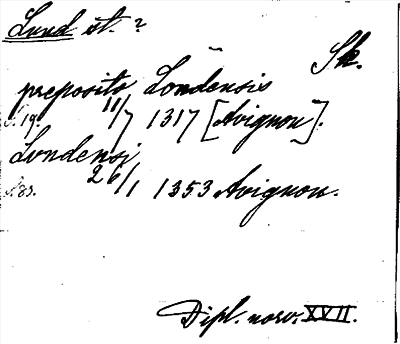 Lund st. ?
Sk.
preposito Londensis
S. 19. 11/7 1317 [Avignon].
Lundensi
S. 83. 26/1 1353 Avignon.
Dipl. norv. XVII.